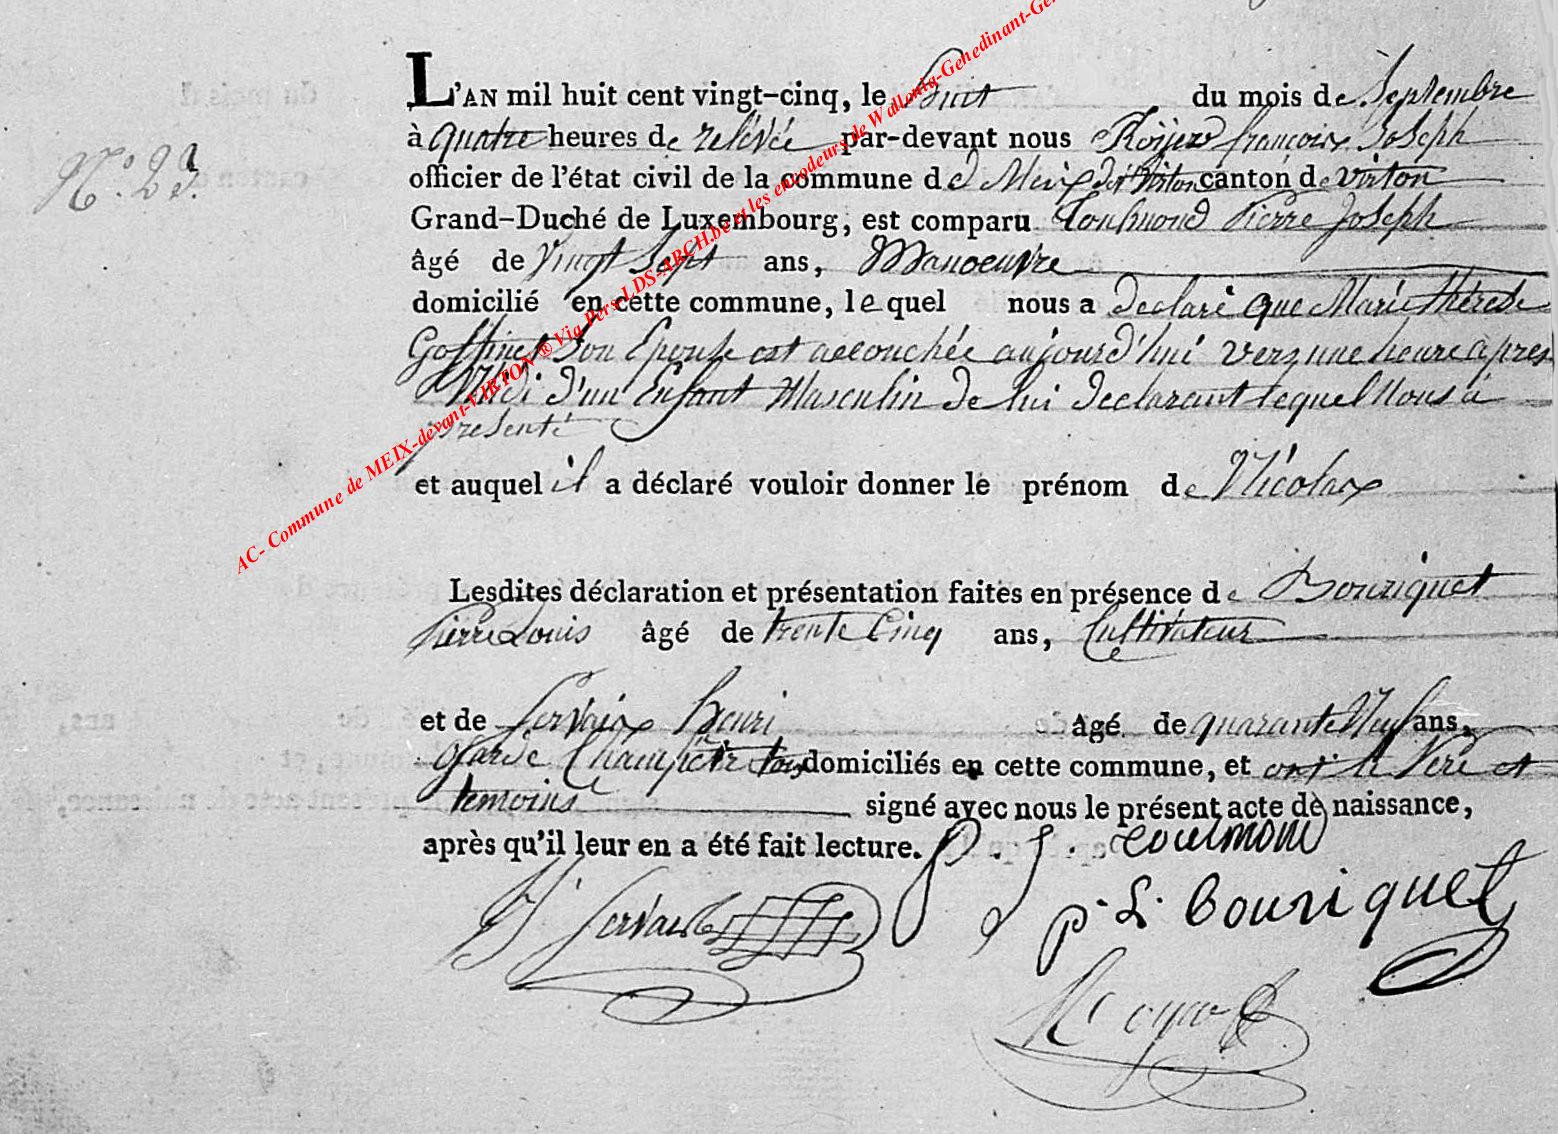 L'AN mil huit cent vingt-cinq, le huit du mois de Septembre
à quatre heures de relévée par-devant nous françois Joseph
N.° 23.
officier de l'état civil de la commune de Meix dt Virton canton de Virton
Grand-Duché de Luxembourg, est comparu Toulmond Pierre Joseph
âgé de Vingt Sept ans, Manoeuvre
domicilié en cette commune, lequel nous a declaré que Marie thérese
Goffinet Son Epouse est accouchée aujourd'hui vers une heure apres
Midi d'un Enfant Masculin de lui declarant lequel Nous à
presenté
et auquel il a déclaré vouloir donner le prénom de Nicolas
AC- Commune de MEIX-devant-VIRTON ® Via Pers-LDS-ARCH.be et les encodeurs de Wallonia-Genedinant-Ge
Lesdites déclaration et présentation faites en présence de Bouriquet
Pierre Louis âgé de trente Cinq ans, Cultivateur
et de Servais henri âgé de quarante Neuf ans,
garde Champêtre tous domiciliés en cette commune, et ont le Pere et
temoins signé avec nous le présent acte de naissance,
après qu'il leur en a été fait lecture. P. J. toulmond
h Servais
p. L. bouriquet